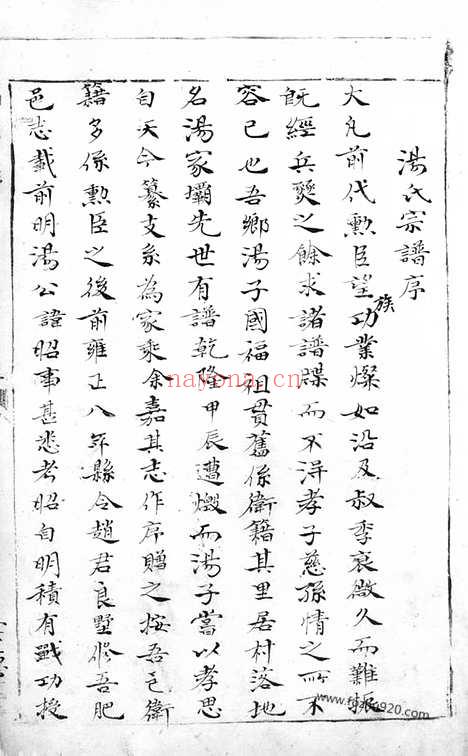 湯氏宗譜序
大凡前代勲臣望族功業燦如沿及叔季衰微久而難振
既經兵燹之餘求諸譜牒而不淂孝子慈孫情之所不
容已也吾鄉湯子國福祖貫舊係衛籍其里居村落地
名湯家壩先世有譜乾隆甲辰遭燬而湯子嘗以孝思
自矢今纂支系為家乘余嘉其志作序贈之按吾邑衛
籍多係勲臣之後前雍正八年縣令趙君良墅修吾肥
邑志載前明湯公諱昭事甚悉考昭自明積有戰功授
nayona.cn